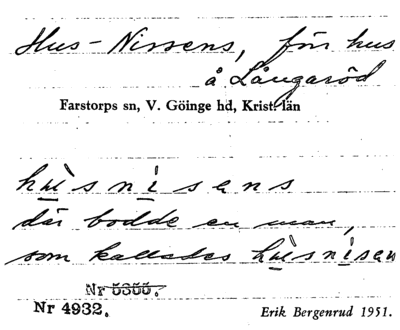 Hus-Nissens, förr hus
å Långaröd
Farstorps sn, V. Göinge hd, Krist. län
hùsnìsens
där bodde en man,
som kallades hùsnìsen
Nr 5355.
Nr 4932.
Erik Bergenrud 1951.